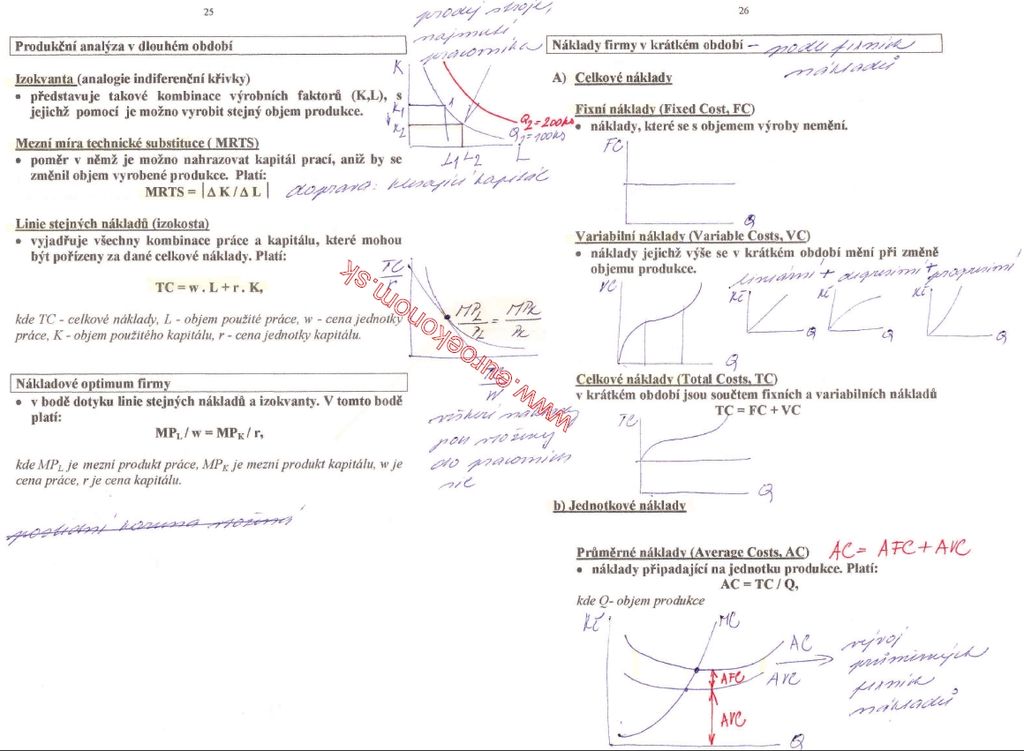 25
prodej stroje,
najmutí
pracovníka
Produkční analýza v dlouhém období
Izokvanta (analogie indiferenční křivky)
• představuje takové kombinace výrobních faktorů (K,L), s
jejichž pomocí je možno vyrobit stejný objem produkce.
K
K1
K2
1
Q2=200ks
Q1=100ks
L1 L2 L
Mezní míra technické substituce ( MRTS)
• poměr v němž je možno nahrazovat kapitál prací, aniž by se
změnil objem vyrobené produkce. Platí:
MRTS = |Δ K / Δ L |
doprava: klesající kapitál
Linie stejných nákladů (izokosta)
• vyjadřuje všechny kombinace práce a kapitálu, které mohou
být pořízeny za dané celkové náklady. Platí:
TC = w . L + r . K,
kde TC - celkové náklady, L - objem použité práce, w - cena jednotky
práce, K - objem použitého kapitálu, r - cena jednotky kapitálu.
TC
MPL / PL = MPK / PK
W
www.euroekonom.sk
Nákladové optimum firmy
• v bodě dotyku linie stejných nákladů a izokvanty. V tomto bodě
platí:
MPL / w = MPK / r,
kde MPL je mezní produkt práce, MPK je mezní produkt kapitálu, w je
cena práce, r je cena kapitálu.
náklady
jsou vloženy
do pracovních
sil
26
Náklady firmy v krátkém období – podle fixních
nákladů
A) Celkové náklady
Fixní náklady (Fixed Cost, FC)
• náklady, které se s objemem výroby nemění.
FC
Q
Variabilní náklady (Variable Costs, VC)
• náklady jejichž výše se v krátkém období mění při změně
objemu produkce.
lineární + degresivní + progresivní
VC
Q
Kč
Q
Kč
Q
Kč
Q
Celkové náklady (Total Costs, TC)
v krátkém období jsou součtem fixních a variabilních nákladů
TC = FC + VC
TC
Q
b) Jednotkové náklady
Průměrné náklady (Average Costs, AC) AC = AFC + AVC
• náklady připadající na jednotku produkce. Platí:
AC = TC / Q,
kde Q- objem produkce
Kč
MC
AC
AVC
AFC
AVC
Q
vývoj
průměrných
fixních
nákladů